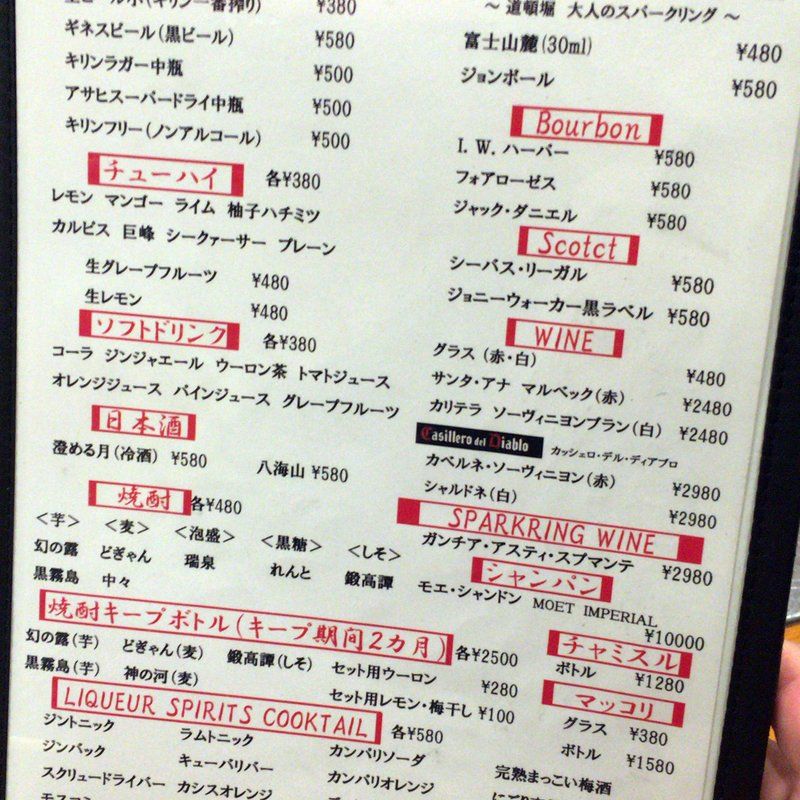 生ビール小(キリン一番搾り) ¥380
ギネスビール(黒ビール) ¥580
キリンラガー中瓶 ¥500
アサヒスーパードライ中瓶 ¥500
キリンフリー(ノンアルコール) ¥500
チューハイ 各¥380
レモン マンゴー ライム 柚子ハチミツ
カルピス 巨峰 シークァーサー プレーン
生グレープフルーツ ¥480
生レモン ¥480
ソフトドリンク 各¥380
コーラ ジンジャエール ウーロン茶 トマトジュース
オレンジジュース パインジュース グレープフルーツ
日本酒
澄める月(冷酒) ¥580 八海山 ¥580
焼酎 各¥480
<芋> <麦> <泡盛> <黒糖> <しそ>
幻の露 どぎゃん 瑞泉 れんと 鍛高譚
黒霧島 中々
焼酎キープボトル(キープ期間2カ月) 各¥2500
幻の露(芋) どぎゃん(麦) 鍛高譚(しそ) セット用ウーロン ¥280
黒霧島(芋) 神の河(麦) セット用レモン・梅干し ¥100
LIQUEUR SPIRITS COOKTAIL 各¥580
ジントニック ラムトニック カンパリソーダ
ジンバック キューバリバー カンパリオレンジ
スクリュードライバー カシスオレンジ
~ 道頓堀 大人のスパークリング ~
富士山麓(30ml) ¥480
ジョンボール ¥580
Bourbon
I. W. ハーパー ¥580
フォアローゼス ¥580
ジャック・ダニエル ¥580
Scotct
シーバス・リーガル ¥580
ジョニーウォーカー黒ラベル ¥580
WINE
グラス (赤・白) ¥480
サンタ・アナ マルベック(赤) ¥2480
カリテラ ソーヴィニヨンブラン(白) ¥2480
Casillero del Diablo カッシェロ・デル・ディアブロ
カベルネ・ソーヴィニヨン(赤) ¥2980
シャルドネ(白) ¥2980
SPARKRING WINE
ガンチア・アスティ・スプマンテ ¥2980
シャンパン
モエ・シャンドン MOET IMPERIAL ¥10000
チャミスル
ボトル ¥1280
マッコリ
グラス ¥380
ボトル ¥1580
完熟まっこい梅酒